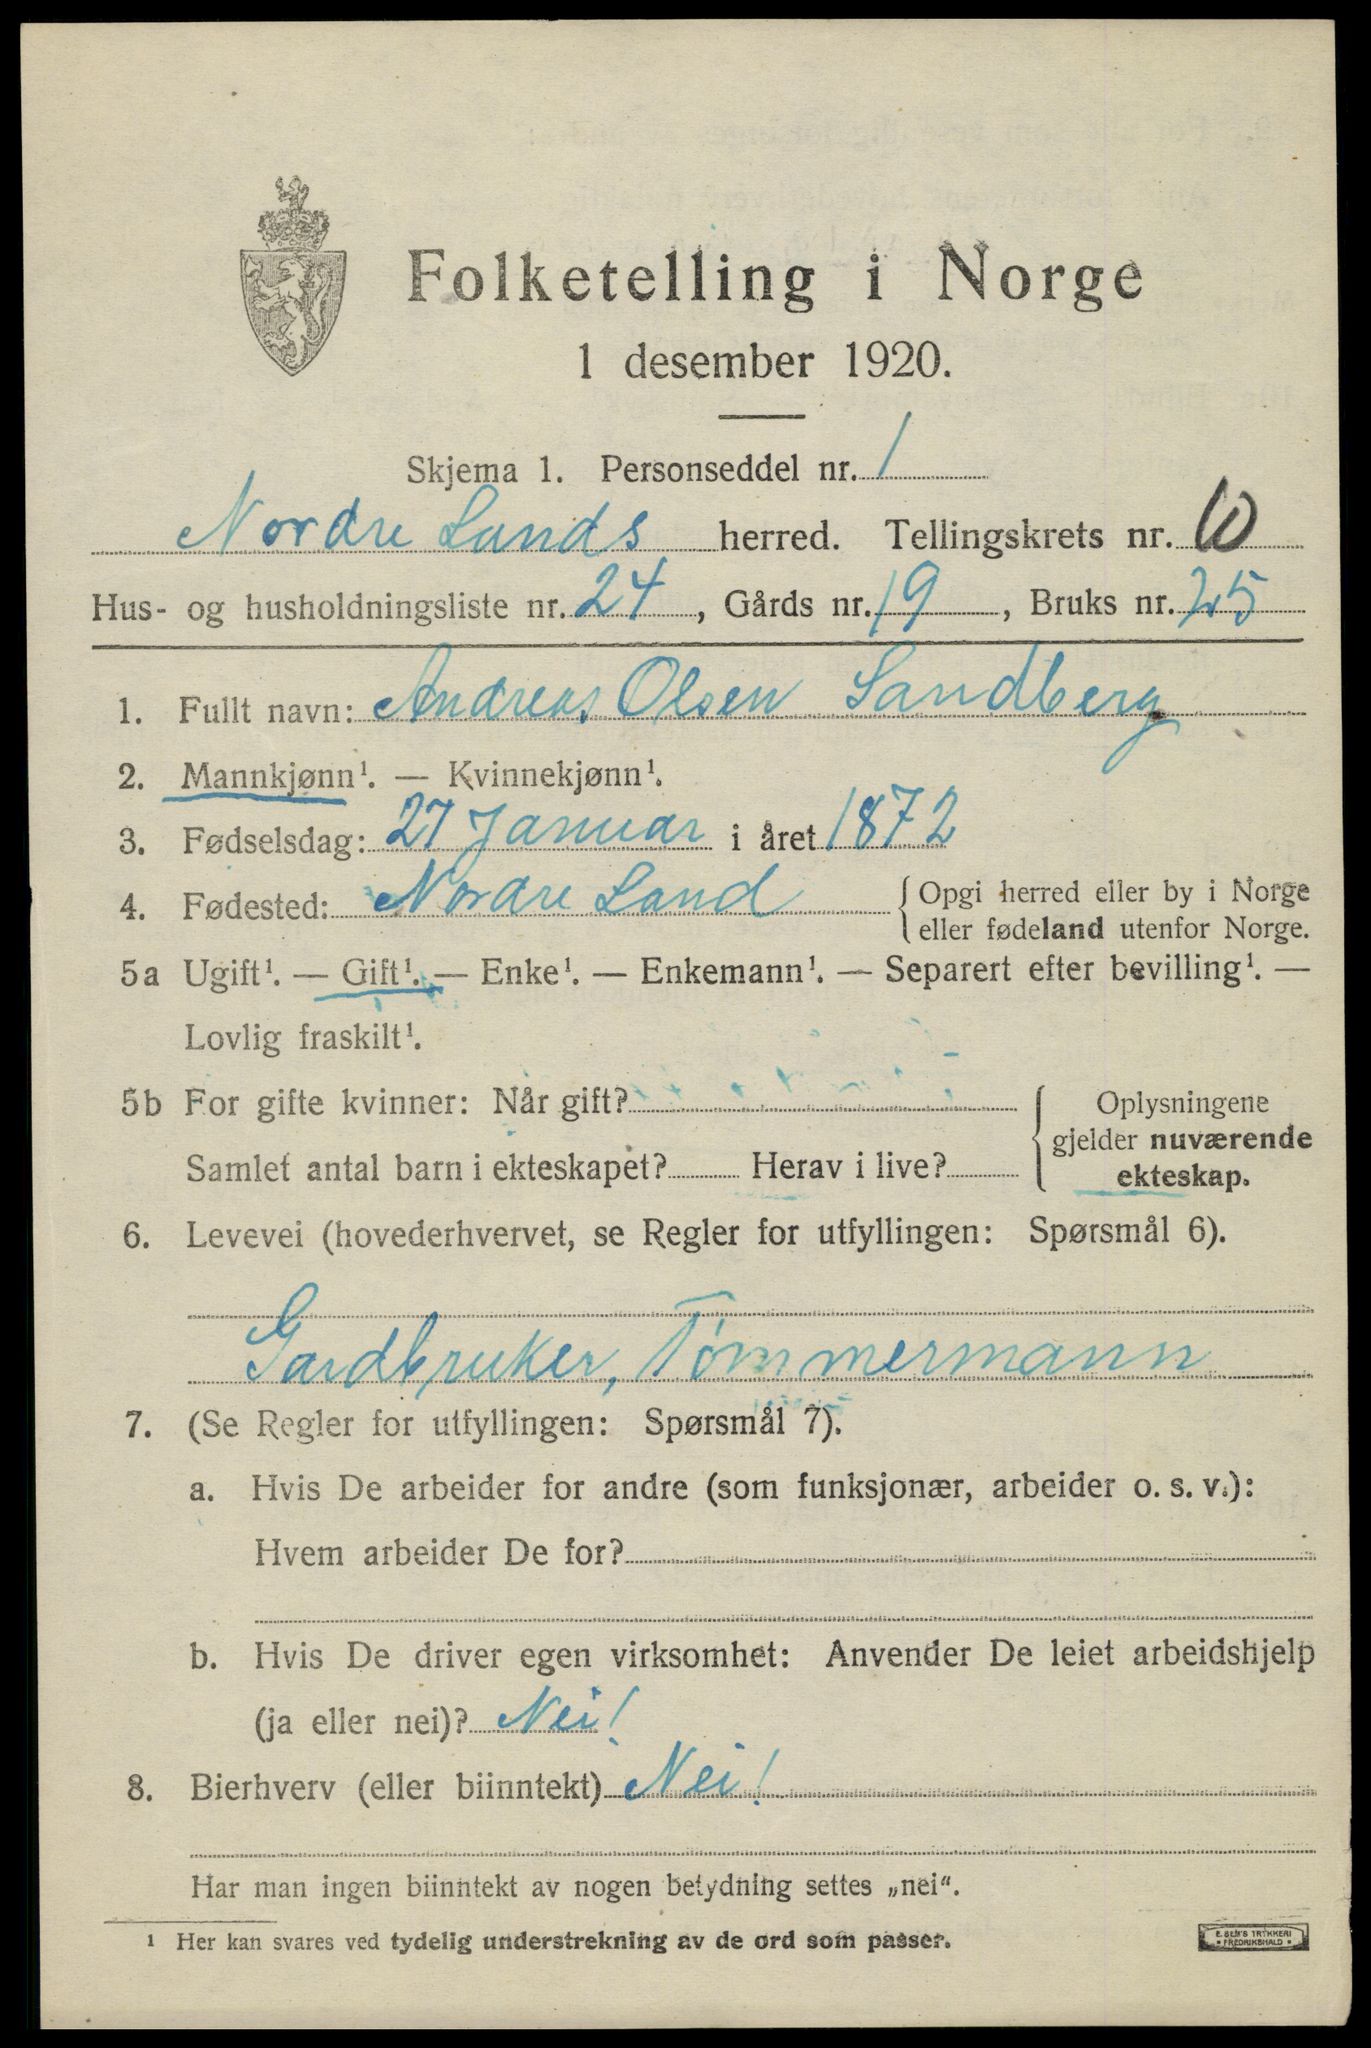 Folketelling i Norge
1 desember 1920.
Skjema 1. Personseddel nr. 1
Nordre Lands herred. Tellingskrets nr. 10
Hus- og husholdningsliste nr. 24, Gårds nr. 19, Bruks nr. 25
1. Fullt navn: Andreas Olsen Sandberg
2. Mannkjønn¹. — Kvinnekjønn¹.
3. Fødselsdag: 27 Januar i året 1872
4. Fødested: Nordre Land { Opgi herred eller by i Norge
eller fødeland utenfor Norge.
5a Ugift¹. — Gift¹. — Enke¹. — Enkemann¹. — Separert efter bevilling¹. —
Lovlig fraskilt¹.
5b For gifte kvinner: Når gift?
Samlet antal barn i ekteskapet? Herav i live?
Oplysningene
gjelder nuværende
ekteskap.
6. Levevei (hovederhvervet, se Regler for utfyllingen: Spørsmål 6).
Gardbruker, Tømmermann
7. (Se Regler for utfyllingen: Spørsmål 7).
a. Hvis De arbeider for andre (som funksjonær, arbeider o. s. v.):
Hvem arbeider De for?
b. Hvis De driver egen virksomhet: Anvender De leiet arbeidshjelp
(ja eller nei)? Nei!
8. Bierhverv (eller biinntekt) Nei!
Har man ingen biinntekt av nogen betydning settes „nei“.
¹ Her kan svares ved tydelig understrekning av de ord som passer.
E. SEM'S TRYKKERI
FREDRIKSHALD